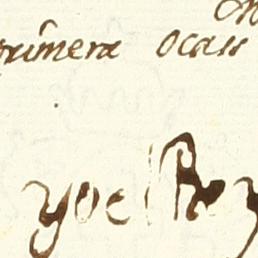 primera ocass
yo el Rey